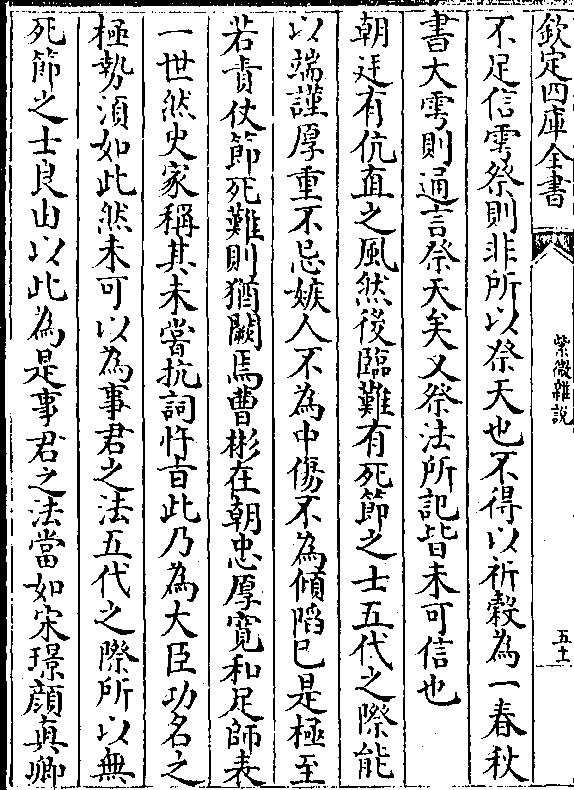 欽定四庫全書
紫微雜說
五十
不足信雩祭則非所以祭天也不得以祈穀為一春秋
書大雩則通言祭天矣又祭法所記皆未可信也
朝廷有伉直之風然後臨難有死節之士五代之際能
以端謹厚重不忌嫉人不為中傷不為傾陷已是極至
若責仗節死難則猶闕焉曹彬在朝忠厚寛和足師表
一世然史家稱其未嘗抗詞忤旨此乃為大臣功名之
極勢須如此然未可以為事君之法五代之際所以無
死節之士良由以此為是事君之法當如宋璟顔真卿